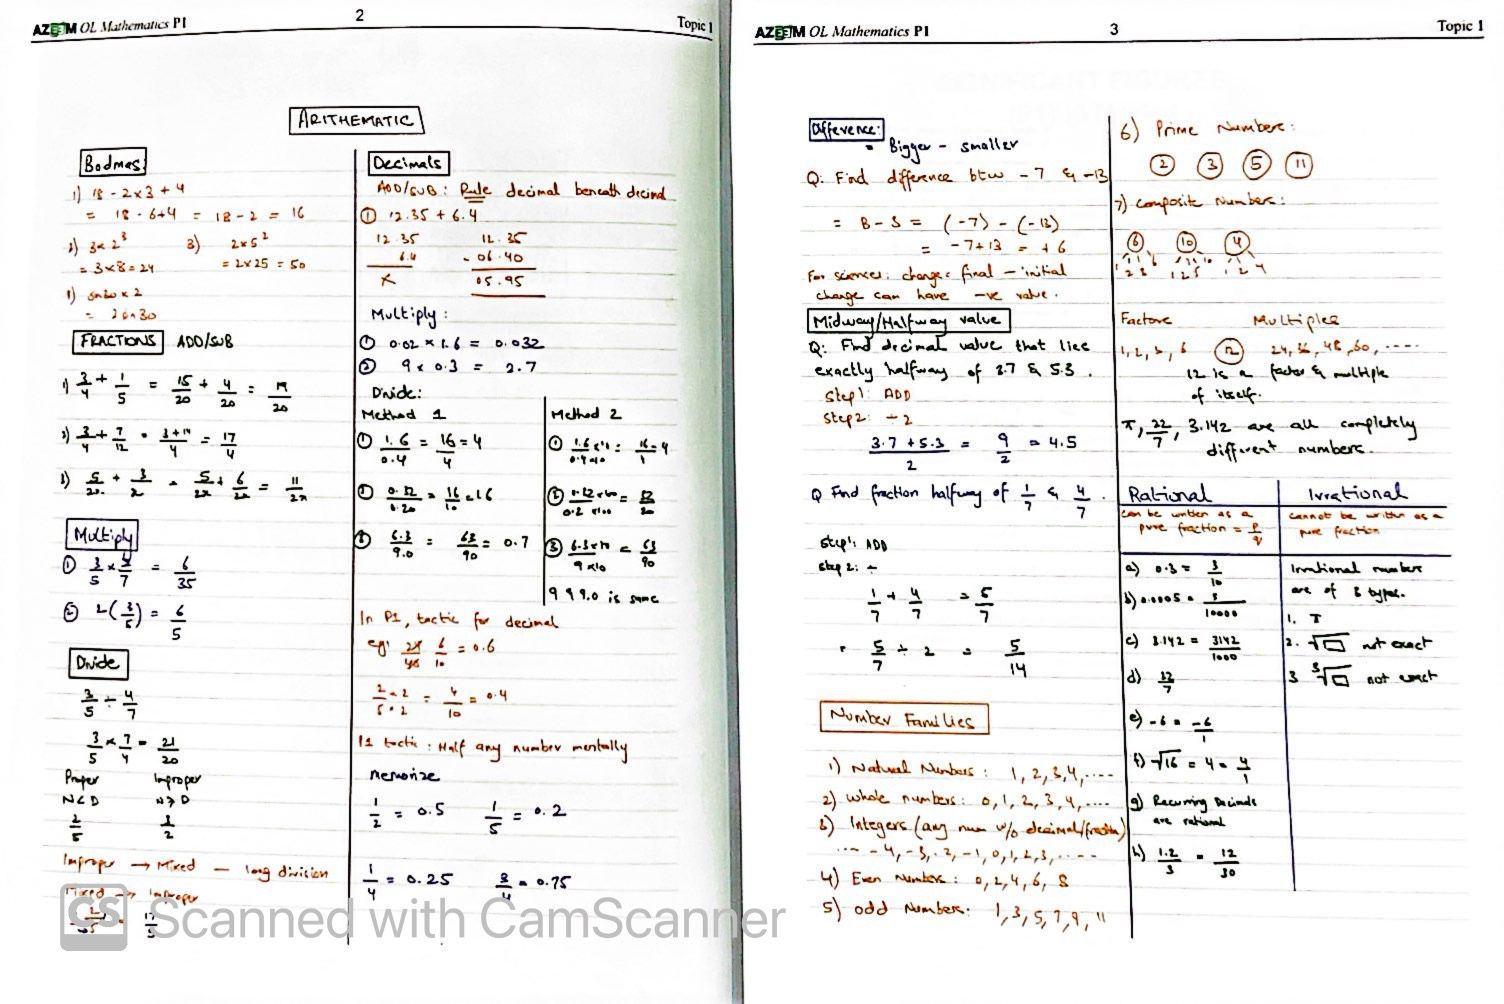 AZEEM OL Mathematics P1
2
Topic 1
ARITHEMATIC
Bodmas:
1) 18 - 2×3 + 4
= 18 - 6+4 = 18 - 2 = 16
2) 3×2³
= 3×8 = 24
3) 2×5²
= 2×25 = 50
FRACTIONS ADD/SUB
1) 3/4 + 1/5 = 15/20 + 4/20 = 19/20
2) 3/4 + 7/12 = 3+14/4 = 17/4
3) 5/2x + 3/x = 5/2x + 6/2x = 11/2x
Multiply
① 3/5 × 2/7 = 6/35
② 2(3/5) = 6/5
Divide
3/5 ÷ 4/7
3/5 × 7/4 = 21/20
Proper Improper
N<D N>D
2/5 3/2
Improper → Mixed — long division
Mixed → Improper
17/5
Decimals
ADD/SUB: Rule decimal beneath decimal
① 12.35 + 6.4
12.35 12.35
6.4 - 06.40
× 05.95
Multiply:
① 0.02 × 1.6 = 0.032
② 9 × 0.3 = 2.7
Divide:
Method 1
① 1.6/0.4 = 16/4 = 4
0.32/0.20 = 16/10 = 1.6
③ 6.3/9.0 = 63/90 = 0.7
Method 2
① 1.6×10/0.4×10 =
② 0.32×100/0.2×100 = 32/20
③ 6.3×10/9×10 = 63/90
9 & 9.0 is same
In P1, tactic for decimal
eg: 24/40 6/10 = 0.6
2×2/5×2 = 4/10 = 0.4
P1 tactic: Half any number mentally
memorize
1/2 = 0.5 1/5 = 0.2
1/4 = 0.25 3/4 = 0.75
CS Scanned with CamScanner
AZEEM OL Mathematics P1
3
Topic 1
Difference:
• Bigger - smaller
Q: Find difference btw -7 & -13
= B - S = (-7) - (-13)
= -7+13 = +6
For sciences: change = final - initial
change can have -ve value.
Midway/Halfway value
Q: Find decimal value that lies
exactly halfway of 3.7 & 5.3.
Step1: ADD
Step2: ÷2
3.7+5.3/2 = 9/2 = 4.5
Q Find fraction halfway of 1/7 & 4/7.
Step1: ADD
Step 2: ÷
1/7 + 4/7 = 5/7
5/7 ÷ 2 = 5/14
Number Families
1) Natural Numbers: 1, 2, 3, 4, ....
2) Whole numbers: 0, 1, 2, 3, 4, ....
3) Integers (any num w/o decimal/fraction)
.... -4, -3, -2, -1, 0, 1, 2, 3, .....
4) Even Numbers: 0, 2, 4, 6, 8
5) odd Numbers: 1, 3, 5, 7, 9, 11
6) Prime Numbers:
2 3 5 11
7) Composite Numbers:
6 10 4
1 2 3 6 1 2 5 10 1 2 4
Factors Multiples
12 24, 36, 48, 60, ....
12 is a factor & multiple
of itself.
π, 22/7, 3.142 are all completely
different numbers.
Rational
can be written as a
pure fraction = p/q
a) 0.3 = 3/10
b) 0.0005 =
c) 3.142 = 3142/1000
d) 22/7
e) -6 = -6/1
f) √16 = 4 = 4/1
g) Recurring Decimals
are rational
h) 1.2/3 = 12/30
Irrational
cannot be written as a
pure fraction
Irrational numbers
are of 3 types.
1. π
2. √□ not exact
3. ³√□ not exact